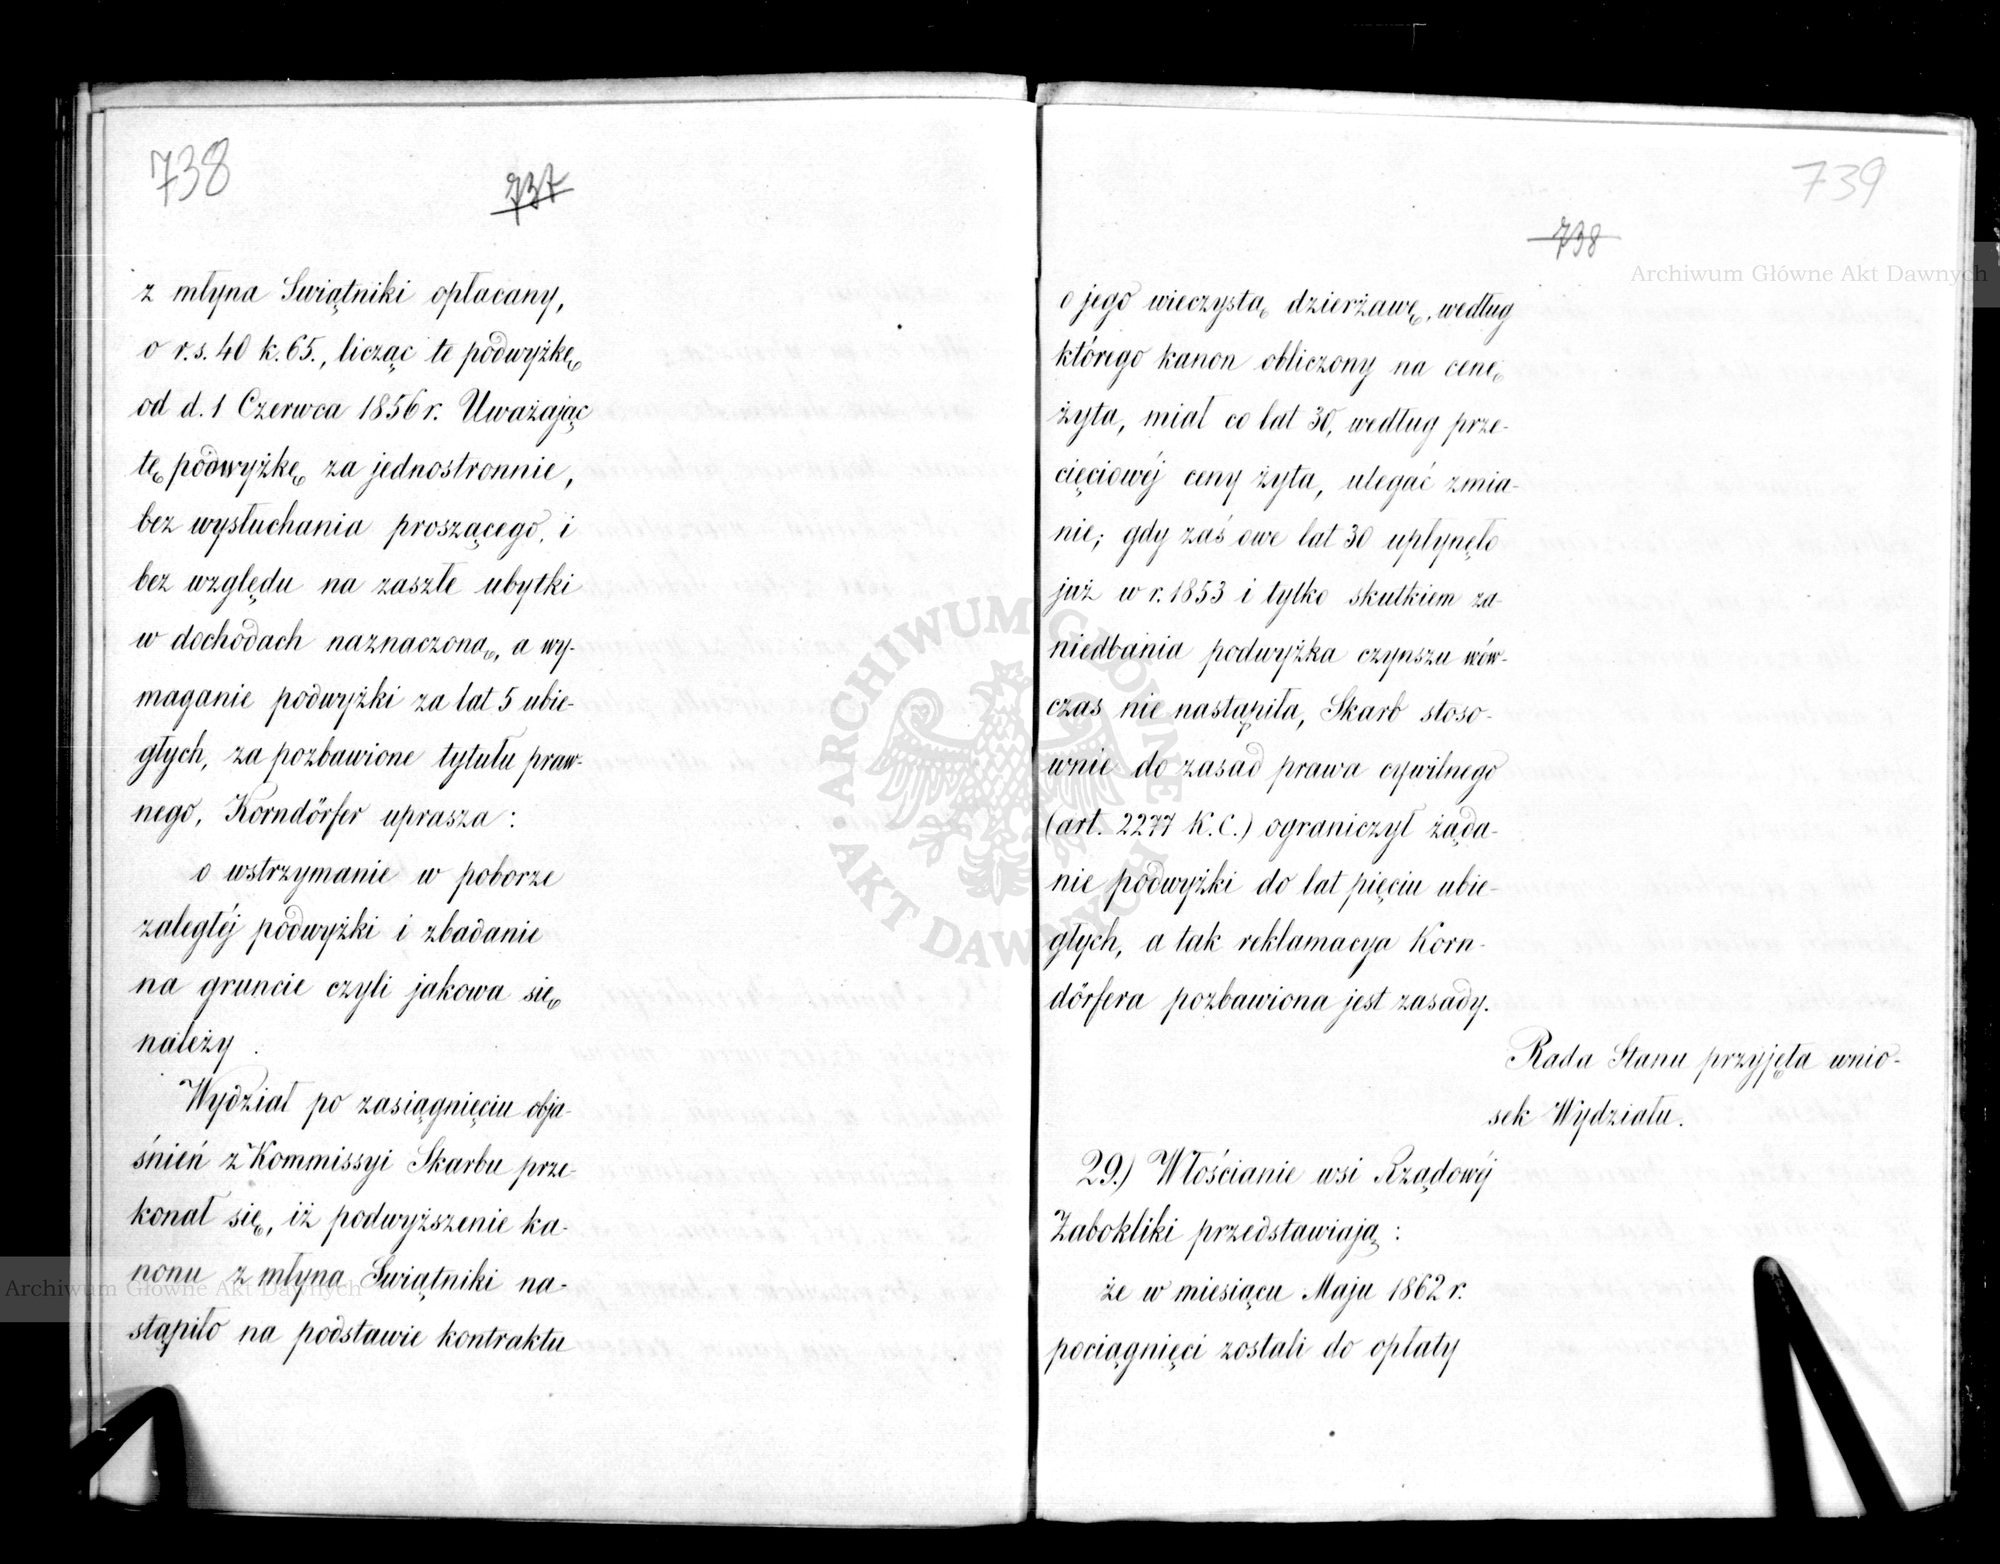 738
737
z młyna Swiątniki opłacany,
o r.s. 40 k. 65., licząc te podwyżkę
od d. 1 Czerwca 1856 r. Uważając
tę podwyżkę za jednostronnie,
bez wysłuchania proszącego, i
bez względu na zaszłe ubytki
w dochodach naznaczoną, a wy-
maganie podwyżki za lat 5 ubie-
głych, za pozbawione tytułu praw-
nego, Korndörfer uprasza:
o wstrzymanie w poborze
zaległéj podwyżki i zbadanie
na gruncie czyli jakowa się
należy.
Wydział po zasiągnięciu obja-
śnień z Kommissyi Skarbu prze-
konał się, iż podwyższenie ka-
nonu z młyna Swiątniki na-
stąpiło na podstawie kontraktu
739
738
o jego wieczystą dzierżawę, według
którego kanon obliczony na cenę
żyta, miał co lat 30, według prze-
cięciowéj ceny żyta, ulegać zmia-
nie; gdy zaś owe lat 30 upłynęło
już w r. 1853 i tylko skutkiem za-
niedbania podwyżka czynszu wów-
czas nie nastąpiła, Skarb stoso-
wnie do zasad prawa cywilnego
(art. 2277 K.C.) ograniczył żąda-
nie podwyżki do lat pięciu ubie-
głych, a tak reklamacya Korn-
dörfera pozbawiona jest zasady.
Rada Stanu przyjęła wnio-
sek Wydziału.
29.) Włościanie wsi Rządowéj
Zabokliki przedstawiają:
że w miesiącu Maju 1862 r.
pociągnięci zostali do opłaty
Archiwum Główne Akt Dawnych
Archiwum Główne Akt Dawnych
ARCHIWUM GŁÓWNE
AKT DAWNYCH